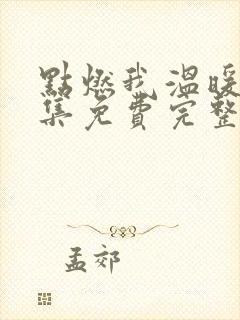 點燃我溫暖
集免費完整
孟郊